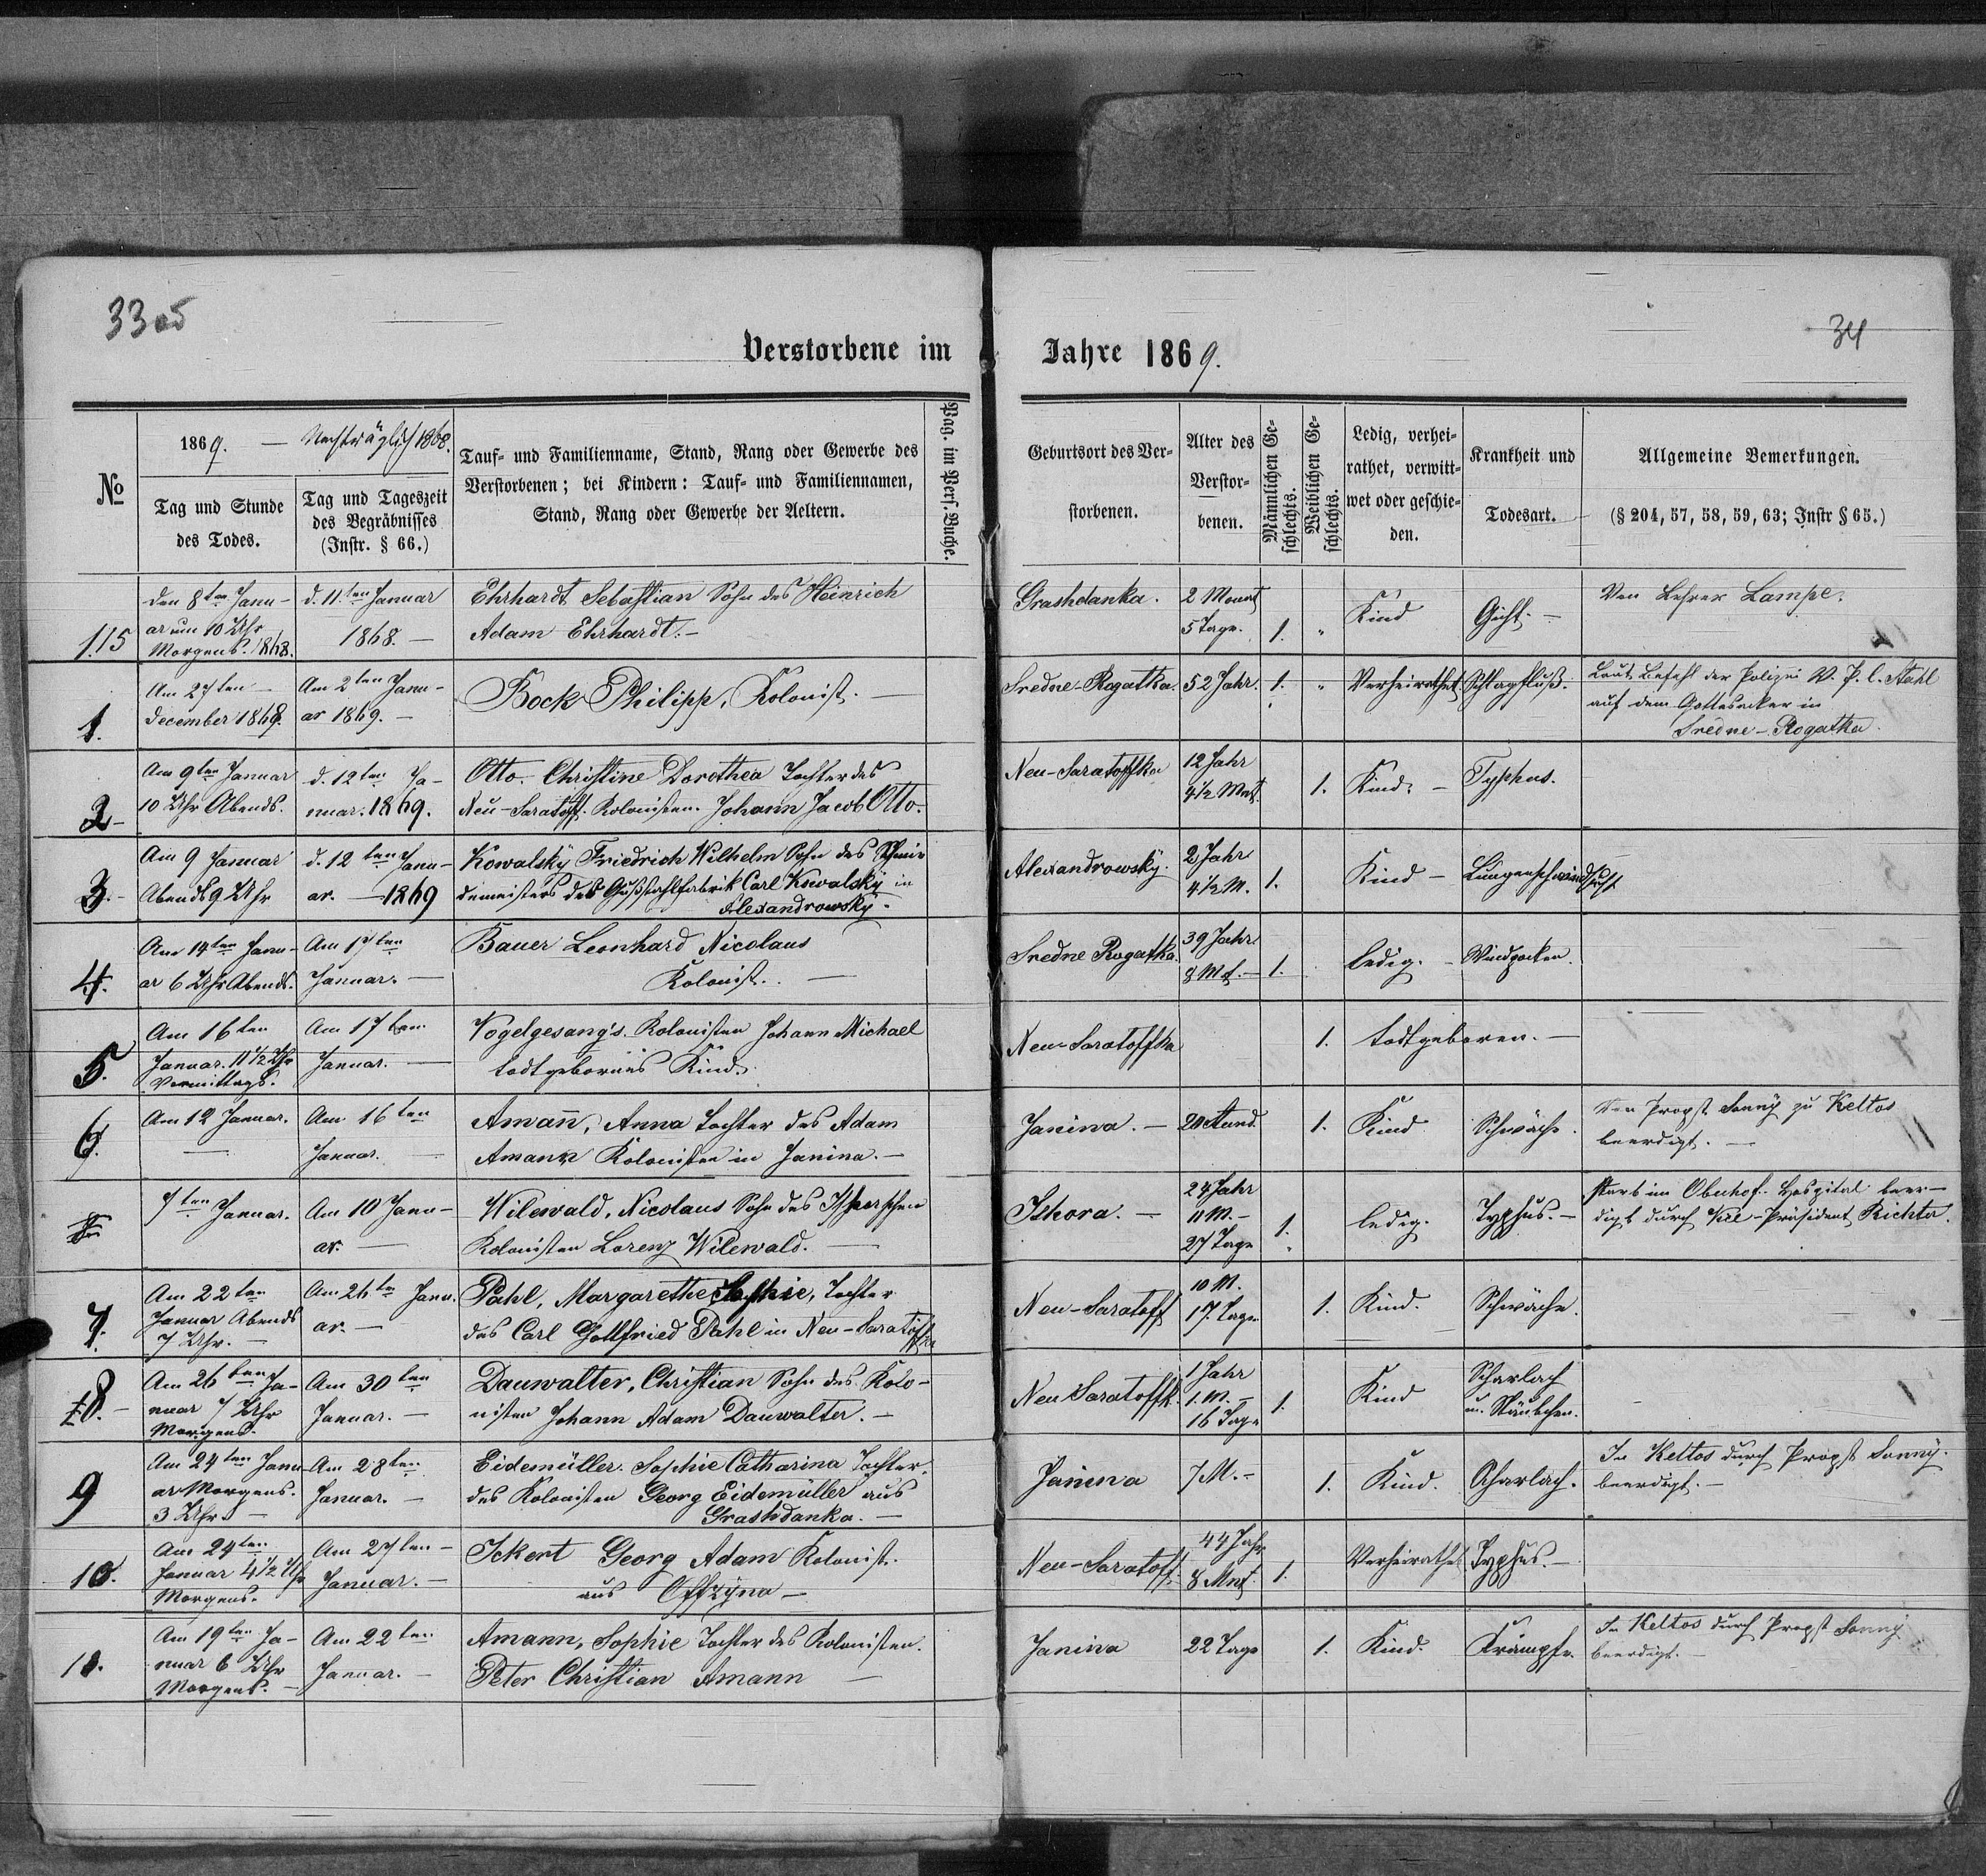 33 об
34
Verstorbene im Jahre 1869.
№
1869. — Nachträglich 1868.
Tag und Stunde
des Todes.
Tag und Tageszeit
des Begräbnisses
(Instr. § 66.)
Tauf- und Familienname, Stand, Rang oder Gewerbe des
Verstorbenen; bei Kindern: Tauf- und Familiennamen,
Stand, Rang oder Gewerbe der Aeltern.
Pag. im Pers.-Buche.
Geburtsort des Ver-
storbenen.
Alter des
Verstor-
benen.
Männlichen Ge-
schlechts.
Weiblichen Ge-
schlechts.
Ledig, verhei-
rathet, verwitt-
wet oder geschie-
den.
Krankheit und
Todesart.
Allgemeine Bemerkungen.
(§ 204, 57, 58, 59, 63; Instr § 65.)
115
den 8ten Janu-
ar um 10 Uhr
Morgens. 1868.
d. 11ten Januar
1868. —
Ehrhardt Sebastian Sohn des Heinrich
Adam Ehrhardt. —
Grashdanka.
2 Monat
5 Tage.
1.
"
Kind
Gicht. —
Von Lehrer Lampe.
1.
Am 27ten —
December 1868.
Am 2ten Janu-
ar 1869. —
Bock Philipp, Kolonist. —
Sredne-Rogatka.
52 Jahr.
1.
"
Verheirathet
Schlagfluß.
Laut Befehl der Polizei
auf dem Gottesacker in
Sredne-Rogatka.
2
Am 9ten Januar
10 Uhr Abends.
d. 12ten Ja-
nuar. 1869.
Otto. Christine Dorothea Tochter des
Neu-Saratoff. Kolonisten Johann Jacob Otto.
Neu-Saratoffka
12 Jahr
4½ Mnt.
1.
Kind. —
Typhus.
3.
Am 9 Januar
Abends 9 Uhr
d. 12ten Janu-
ar. — 1869
Kowalsky Friedrich Wilhelm Sohn des Schmie
demeisters des Gußstahlfabrik Carl Kowalsky in
Alexandrowsky.
Alexandrowsky.
2 Jahr
4½ M.
1.
Kind —
Lungenschwindsucht
4.
Am 14ten Janu-
ar 6 Uhr Abends.
Am 17ten
Januar. —
Bauer Leonhard Nicolaus
Kolonist. —
Sredne Rogatka.
39 Jahr.
8 Mt. —
1.
Ledig. —
Windpocken.
5.
Am 16ten
Januar. 11½ Uhr
Vormittags.
Am 17ten
Januar. —
Vogelgesang's. Kolonisten Johann Michael
todtgebornes Kind.
Neu-Saratoffka
1.
todtgeboren. —
6.
Am 12 Januar.
—
Am 16ten
Januar. —
Amañ, Anna Tochter des Adam
Amann Kolonisten in Janina. —
Janina. —
20 Stund.
1.
Kind
Schwäche.
Von Propst Sonny zu Keltos
beerdigt. —
7ten Januar.
Am 10 Janu-
ar. —
Wilewald, Nicolaus Sohn des Ishorschen
Kolonisten Lorenz Wilewald. —
Ishora. —
24 Jahr
11 M. —
27 Tage
1.
ledig.
Typhus. —
starb im Obuchof. Hospital beer-
digt durch Vice-Präsident Richter.
7.
Am 22ten
Januar Abends
7 Uhr. —
Am 26ten Janu.
ar. —
Pahl, Margarethe Sophie, Tochter
des Carl Gottfried Pahl in Neu-Saratoffka
Neu-Saratoff
10 M.
17. Tage
1.
Kind.
Schwäche.
8. —
Am 26ten Ja-
nuar 7 Uhr
Morgens.
Am 30ten
Januar. —
Dauwalter, Christian Sohn des Kolo-
nisten Johann Adam Dauwalter. —
Neu Saratoffk.
1 Jahr
1. M. —
16 Tage
1.
Kind
Scharlach
9
Am 24ten Janu-
ar Morgens.
3 Uhr. —
Am 28ten
Januar. —
Eidemüller. Sophie Catharina Tochter.
des Kolonisten Georg Eidemüller aus
Grashdanka. —
Janina
7 M. —
1.
Kind.
Scharlach.
In Keltos durch Propst Sonny.
beerdigt. —
10.
Am 24ten
Januar 4½ Uhr
Morgens.
Am 27ten —
Januar. —
Ickert Georg Adam Kolonist.
aus Offzyno —
Neu-Saratoff.
44 Jahr
8 Mnt.
1.
Verheirathet
Typhus. —
11.
Am 19ten Ja-
nuar 6 Uhr
Morgens. —
Am 22ten
Januar. —
Amann, Sophie Tochter des Kolonisten.
Peter Christian Amann —
Janina
22 Tage
1.
Kind.
Krämpfe.
In Keltos durch Propst Sonny
beerdigt. —